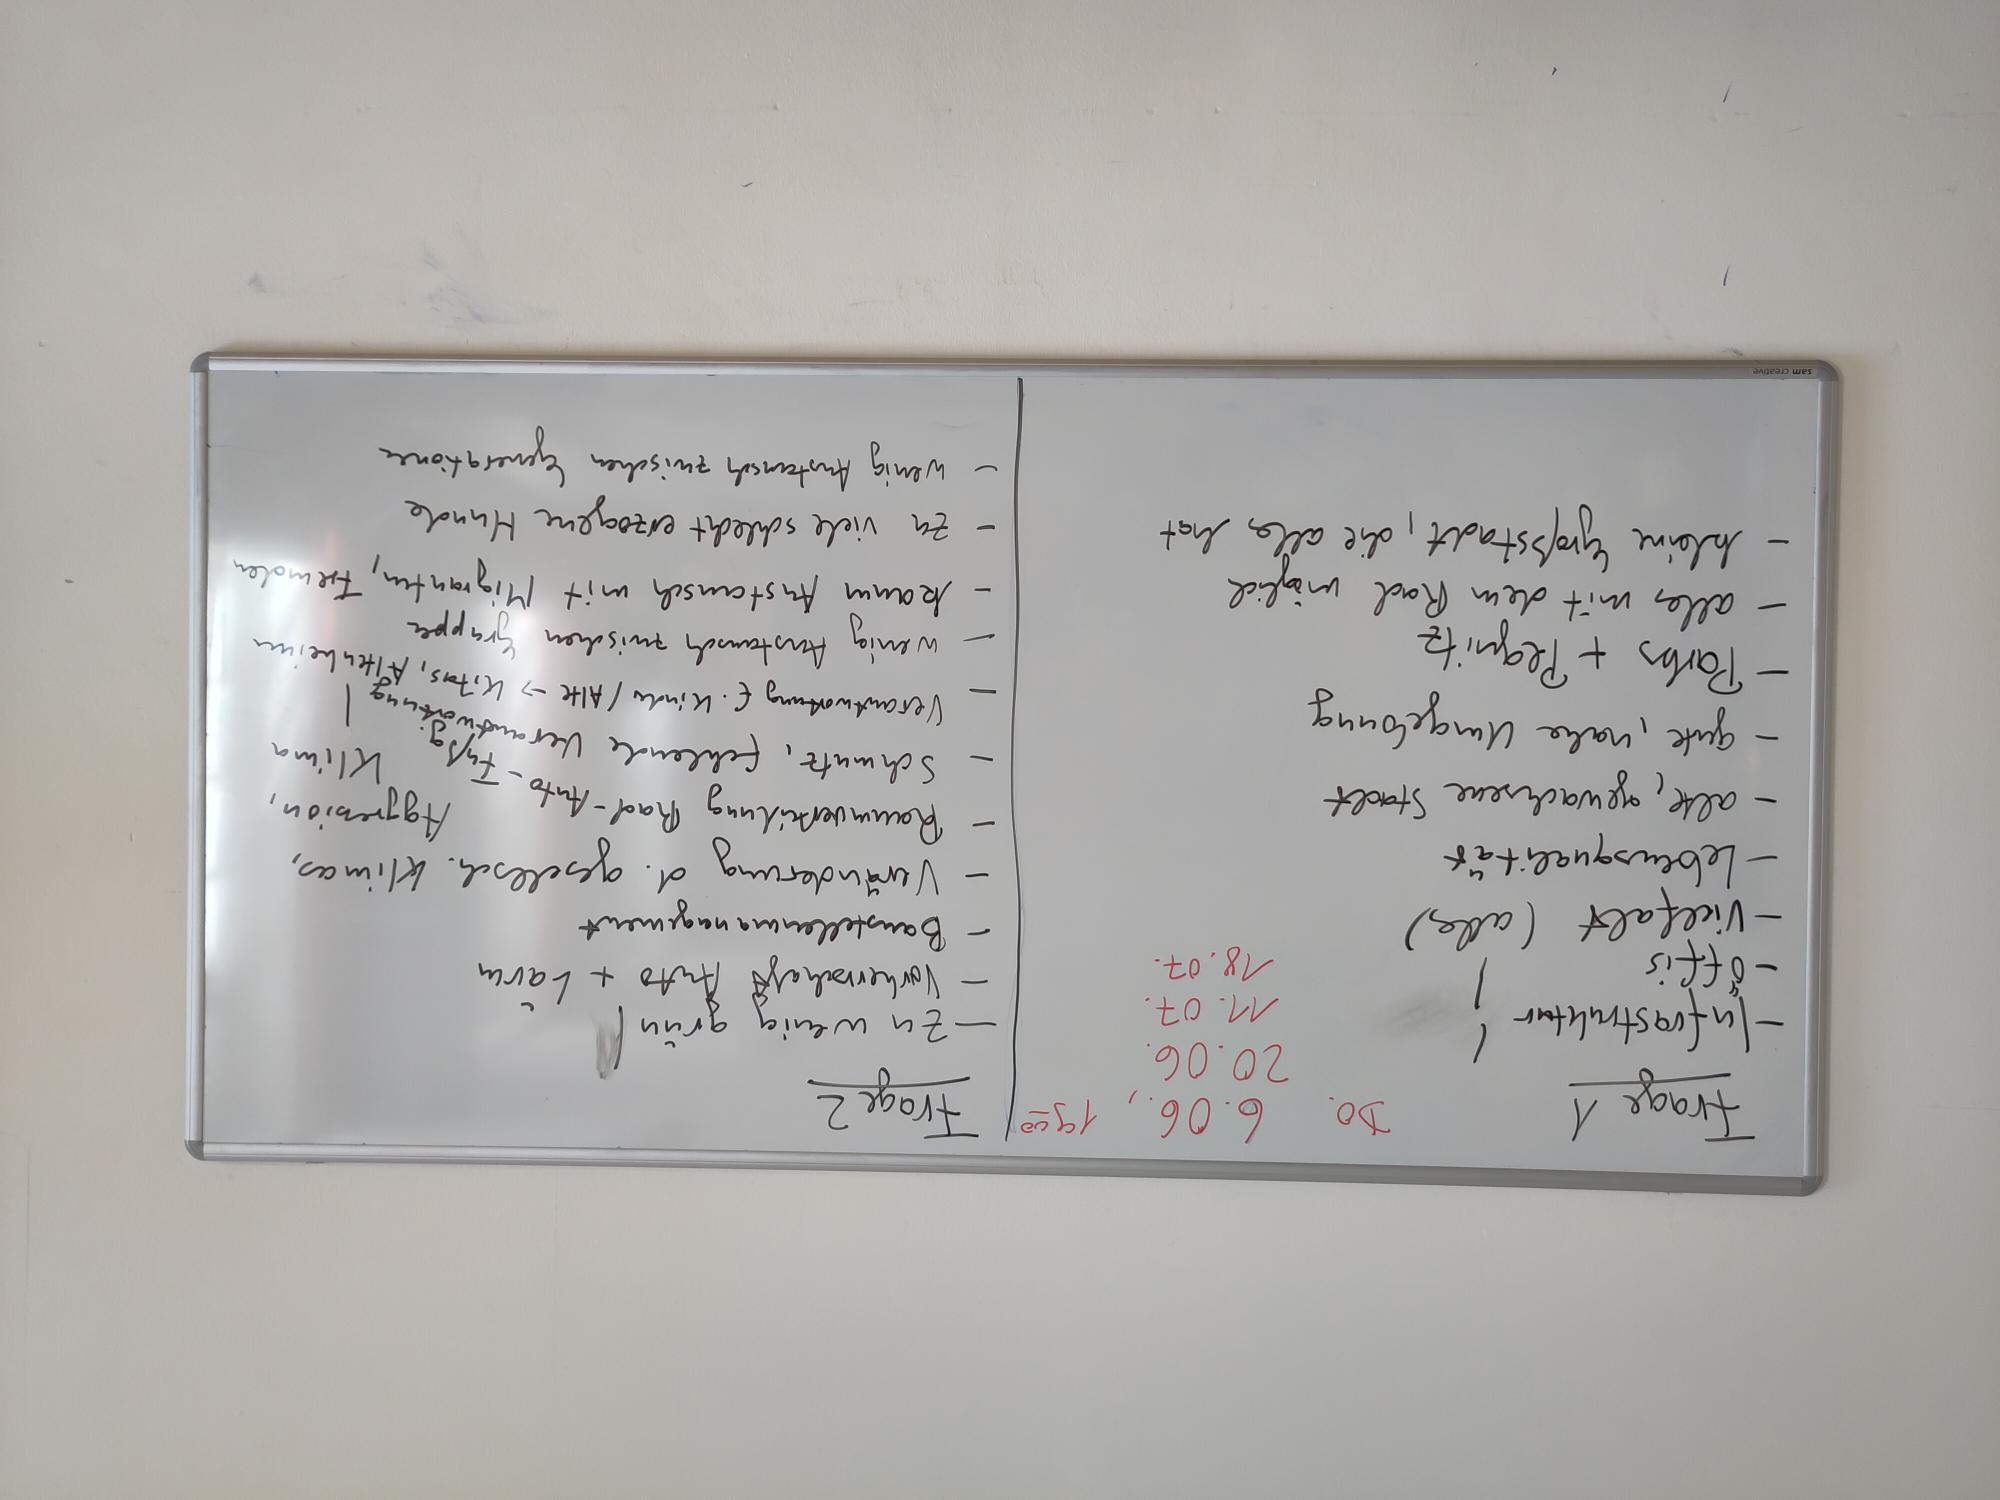 Frage 1
- Infrastruktur |
- Öffis |
- Vielfalt (alles)
- Lebensqualität
- alte, gewachsene Stadt
- gute, nahe Umgebung
- Parks + Pegnitz
- alles mit dem Rad möglich
- kleine Großstadt, die alles hat
Do. 6.06., 19⁰⁰
20.06.
11.07.
18.07.
Frage 2
- Zu wenig grün |
- Vorherrschaft Auto + Lärm
- Baustellenmanagement
- Veränderung d. gesellsch. Klimas,
Aggression,
Klima
- Raumverteilung Rad-Auto-Fußg.
- Schmutz, fehlende Verantwortung |
- Verantwortung f. Kinder/Alte -> Kitas, Altenheime
- wenig Austausch zwischen Gruppen
- kaum Austausch mit Migranten, Fremden
- zu viele schlecht erzogene Hunde
- wenig Austausch zwischen Generationen
sam creative